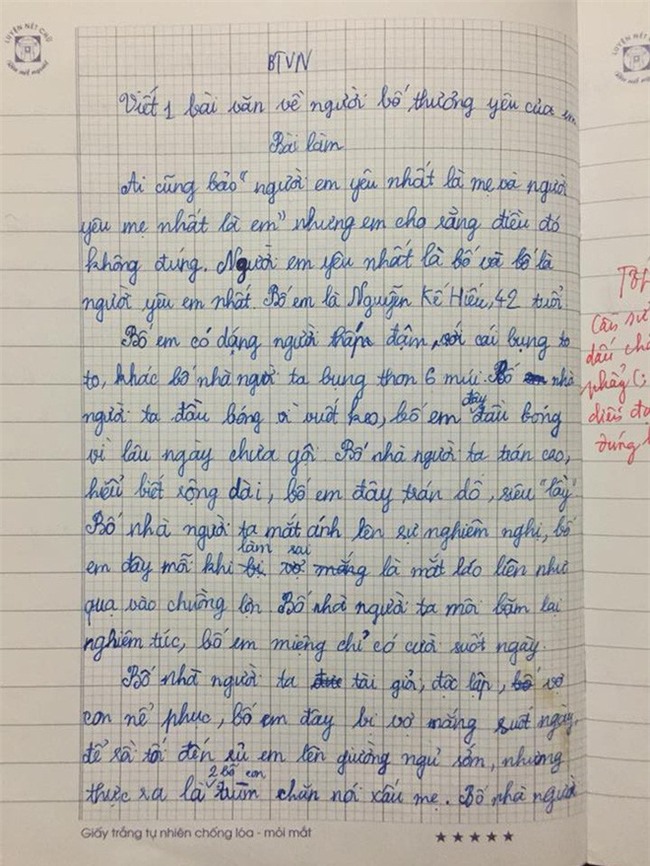 LUYỆN NÉT CHỮ
Rèn nết người
BTVN
Viết 1 bài văn về người bố thương yêu của em
Bài làm
Ai cũng bảo "người em yêu nhất là mẹ và người
yêu mẹ nhất là em" nhưng em cho rằng điều đó
không đúng. Người em yêu nhất là bố và bố là
người yêu em nhất. Bố em là Nguyễn Kế Hiếu, 42 tuổi
Bố em có dáng người thấp đậm, với cái bụng to
to, khác bố nhà người ta bụng thon 6 múi. Bố nhà
người ta đầu bóng vì vuốt keo, bố em đây đầu bóng
vì lâu ngày chưa gội. Bố nhà người ta trán cao,
hiểu biết rộng dài, bố em đây trán dô, siêu "lầy"
Bố nhà người ta mắt ánh lên sự nghiêm nghị, bố
em đây mỗi khi làm sai là mắt láo liên như
quạ vào chuồng lợn Bố nhà người ta môi bặm lại
nghiêm túc, bố em miệng chỉ có cười suốt ngày.
Bố nhà người ta tài giỏi, độc lập, vợ
con nể phục, bố em đây bị vợ mắng suốt ngày,
để rồi tối đến rủ em lên giường ngủ sớm, nhưng
thực ra là 2 bố con trùm chăn nói xấu mẹ. Bố nhà người
Giấy trắng tự nhiên chống lóa - mỏi mắt
Cần sử
dấu chấ
phẩy (;
diễn đạ